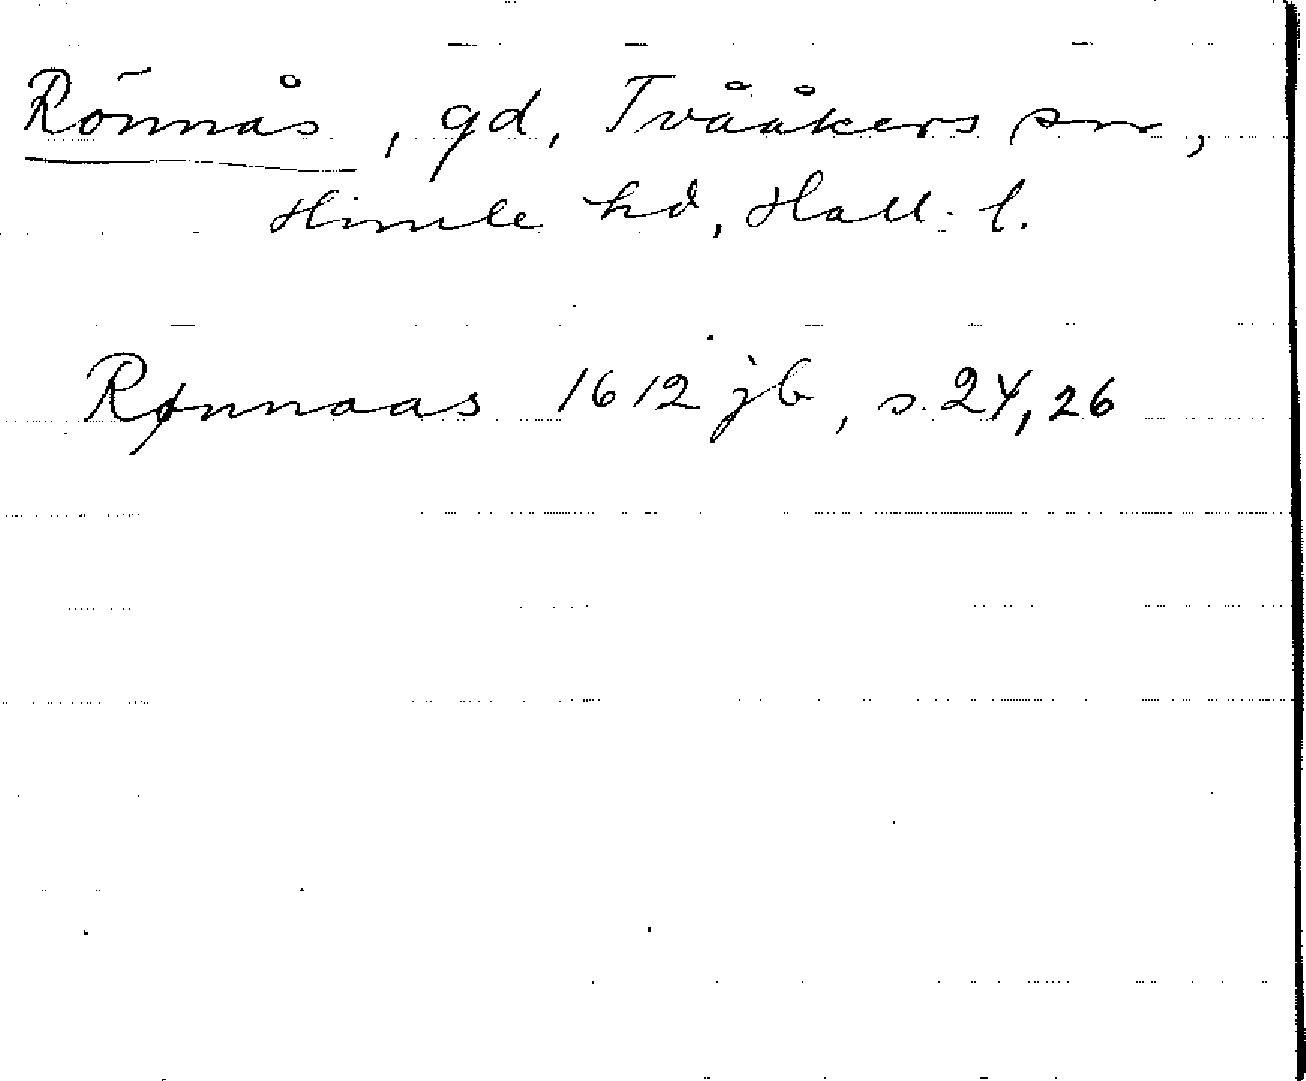 Rönnås, gd, Tvååkers sn,
Himle hd, Hall. l.
Rønnaas 1612 jb, s. 24, 26